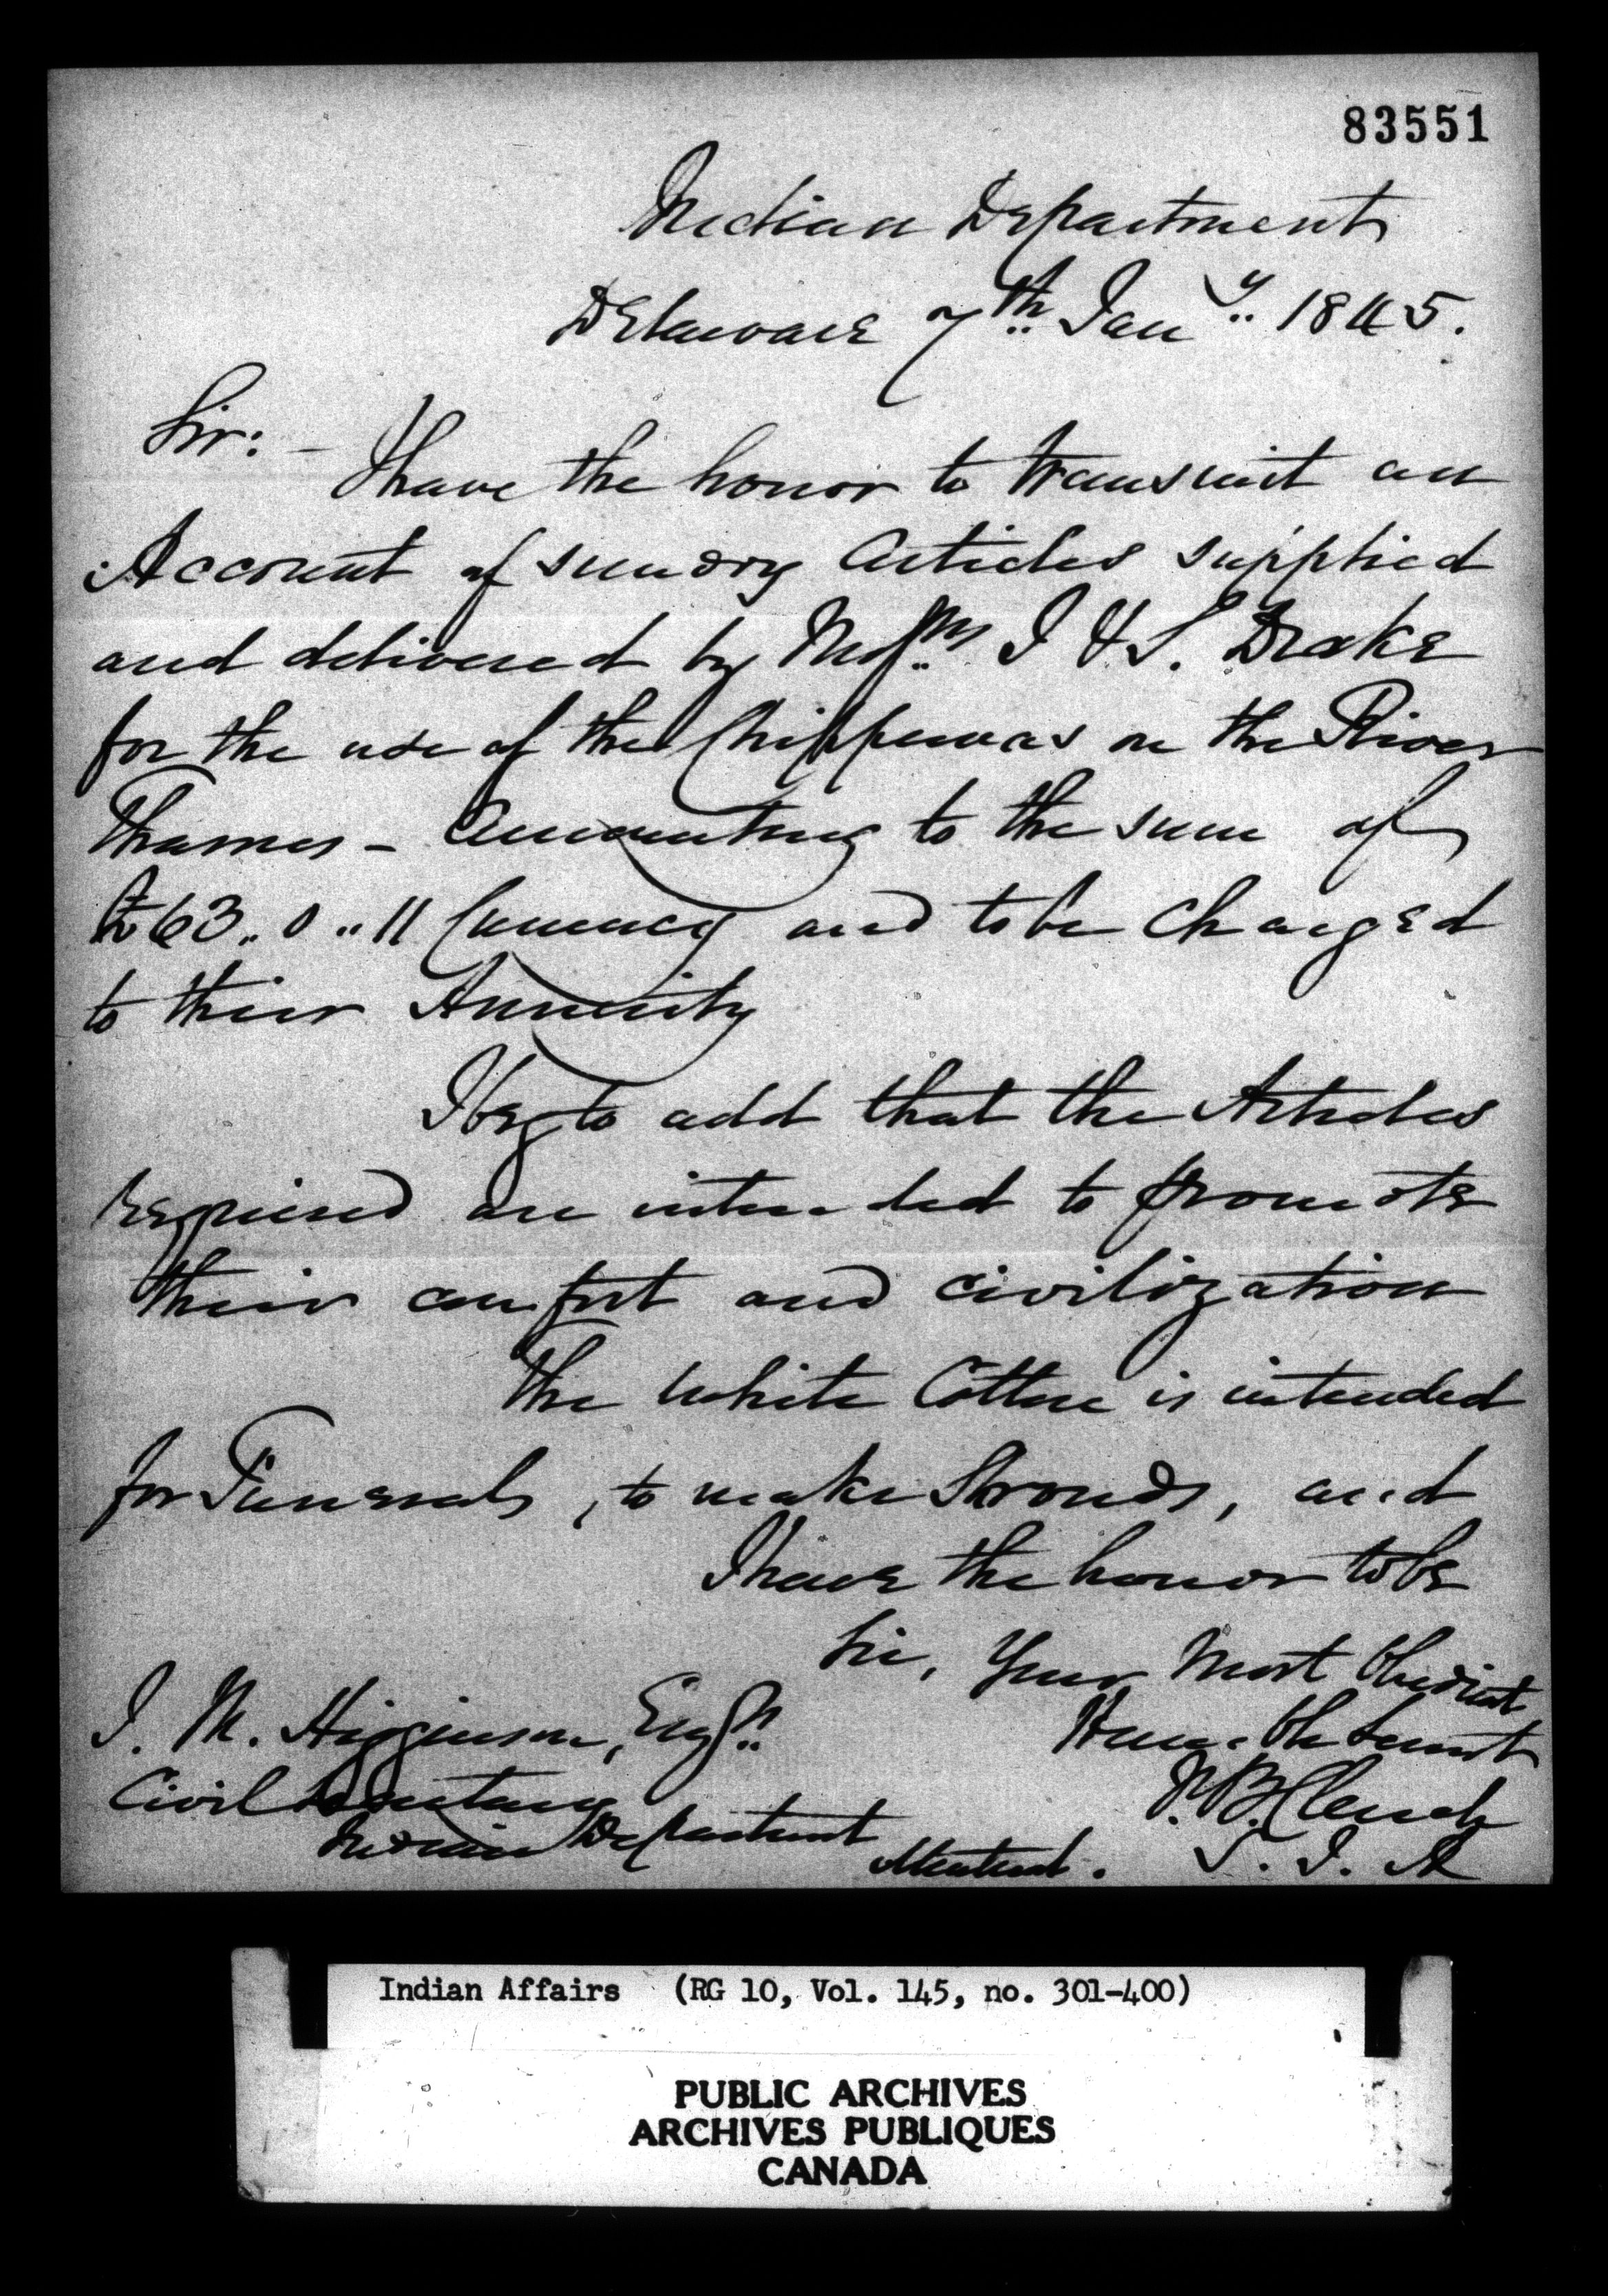 83551
Indian Department
Delaware 7th Jany 1845.
Sir: –
I have the honor to transmit an
Account of sundry Articles supplied
and delivered by Messrs J & S. Drake
for the use of the Chippewas on the River
Thames – Amounting to the sum of
£63.. 0 .. 11 Currency and to be Charged
to their Annuity
I beg to add that the Articles
required are intended to promote
their comfort and civilization
The White Cotton is intended
for Funerals, to make Shrouds, and
I have the honor to be
Sir, Your Most Obedient
Humble Servant
J. B. Clench
S. I. A
J. M. Higginson, Esqr.
Civil Secretary
Indian Department
Montreal.
Indian Affairs (RG 10, Vol. 145, no. 301-400)
PUBLIC ARCHIVES
ARCHIVES PUBLIQUES
CANADA